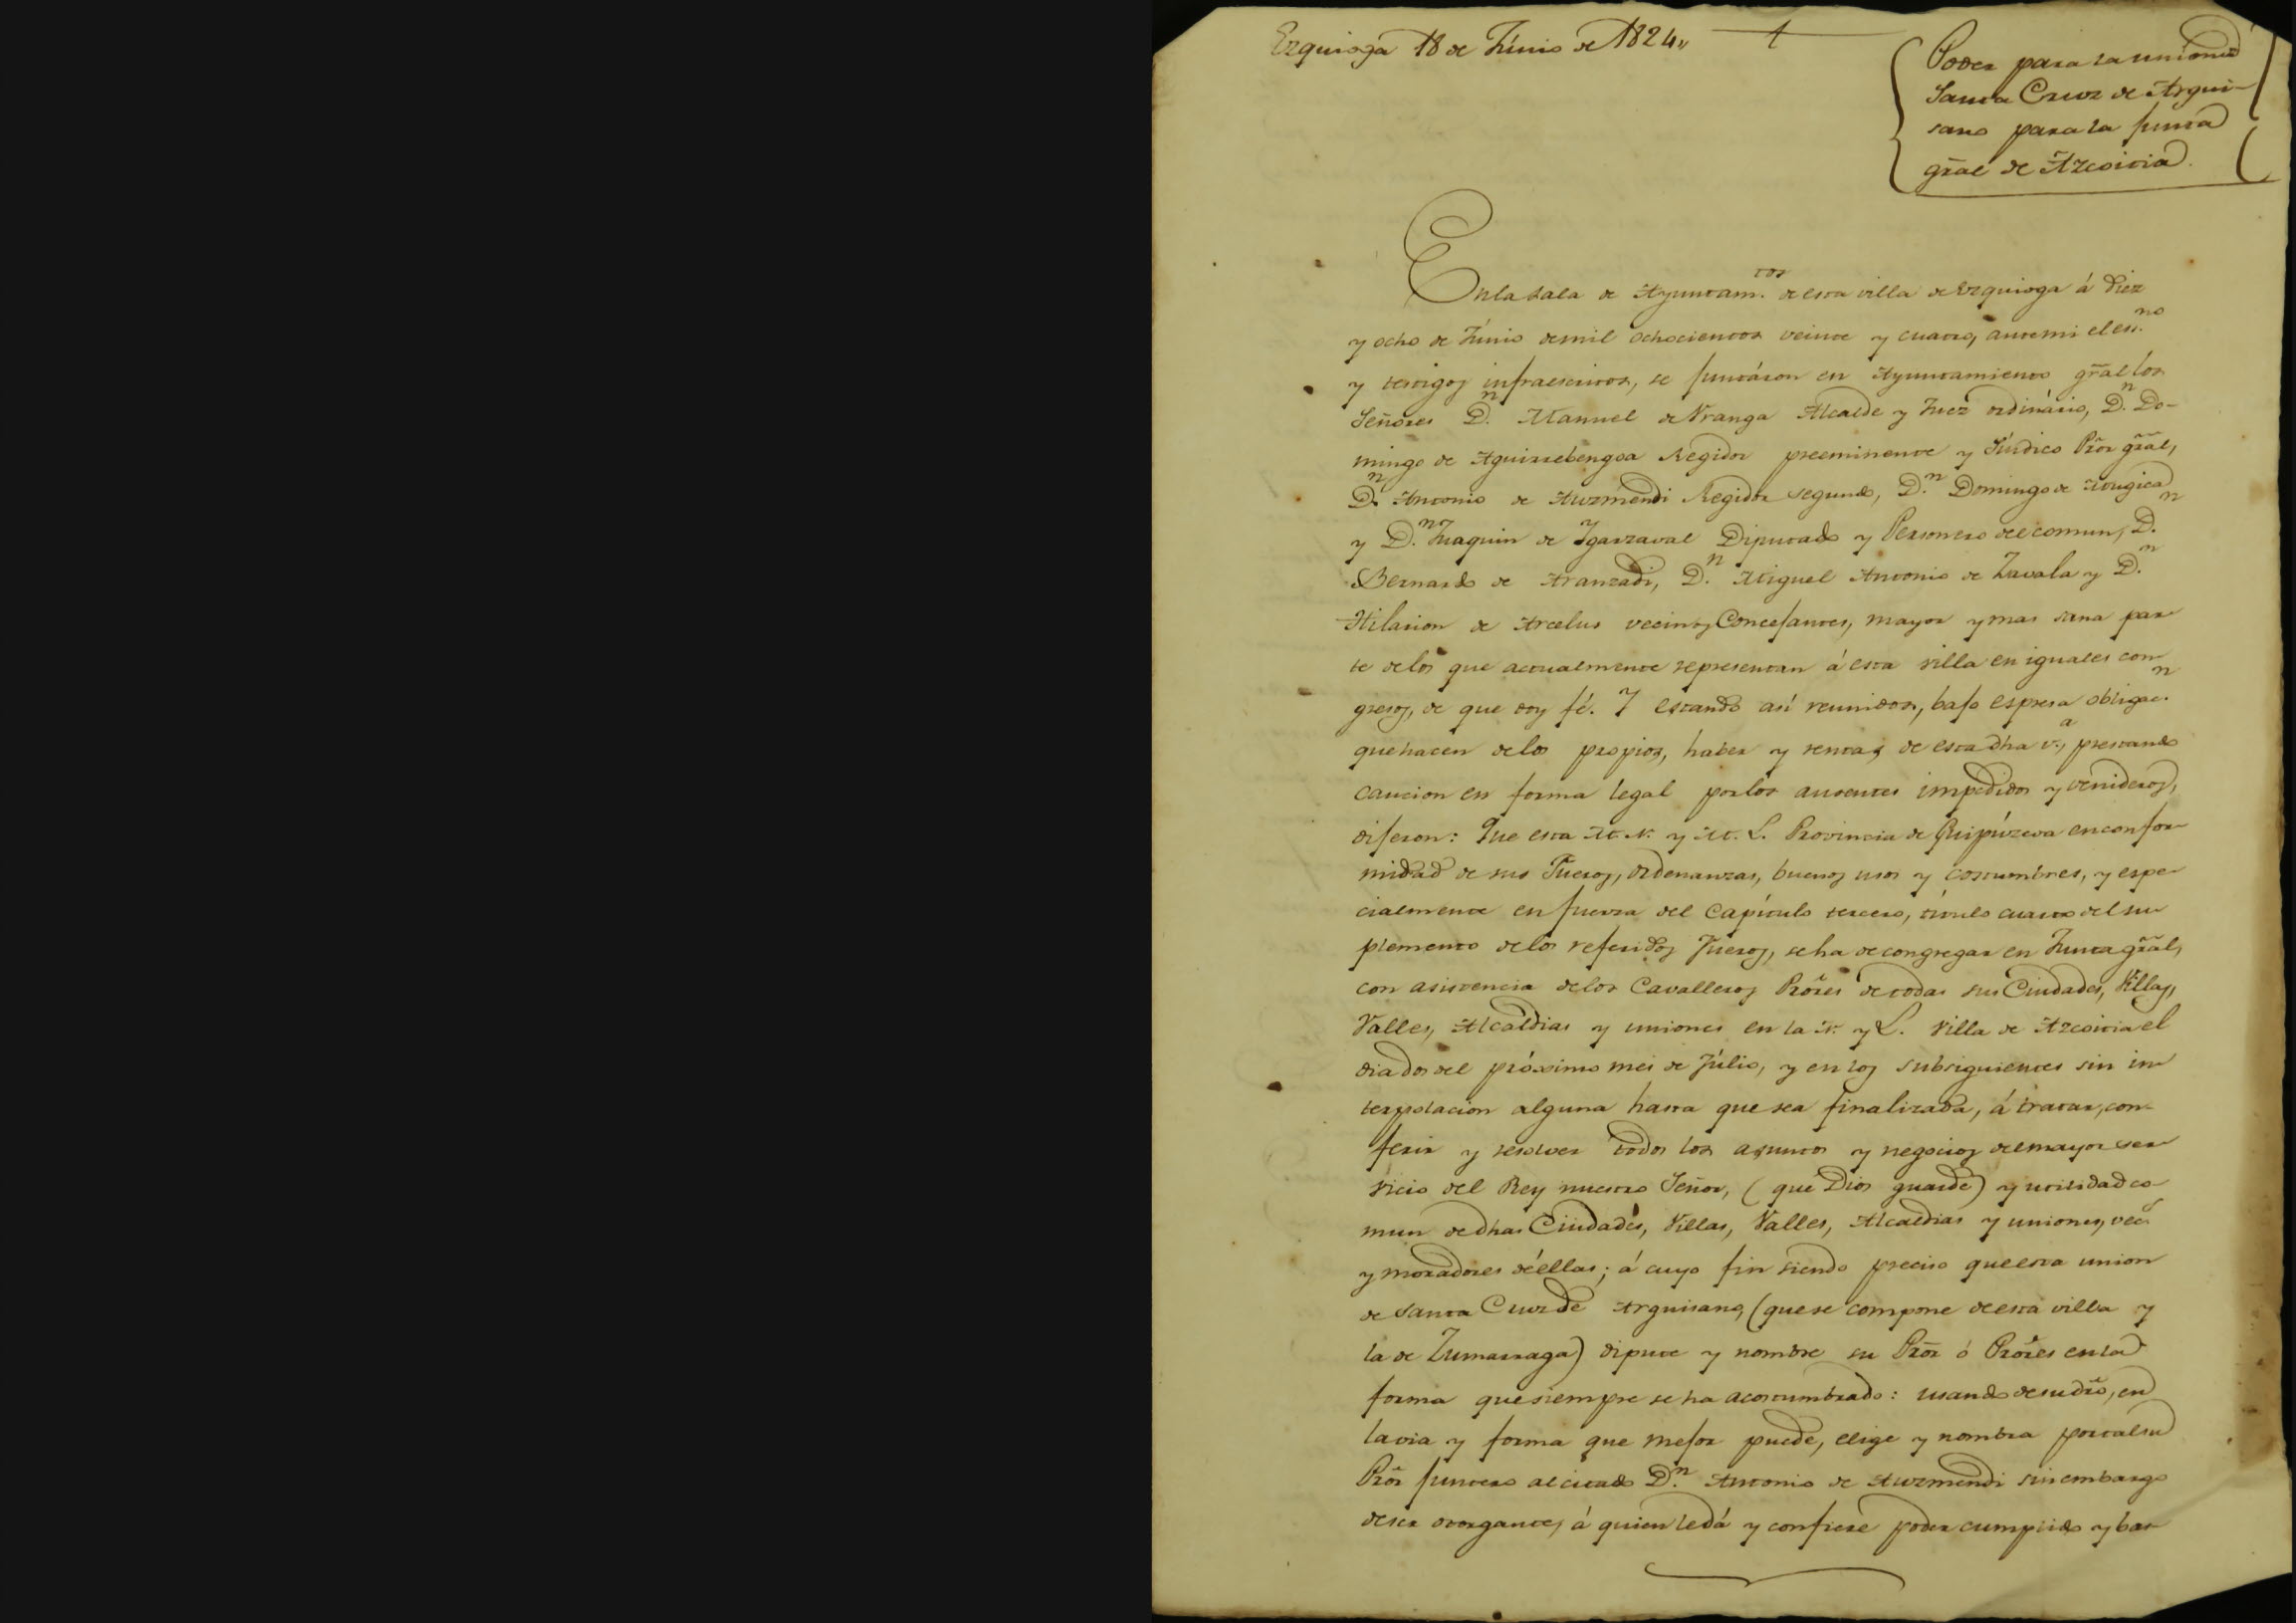 Ezquioga 18 de Júnio de 1824,,
1
Poder para la union de
Santa Cruz de Argui-
sano para la junta
gräl de Azcoitia.
En la Sala de Ayuntam.tos de esta villa de Ezquioga á diez
y ocho de Júnio de mil ochocientos veinte y cuatro, ante mi el es.no
y testigos infraescritos, se juntáron en Ayuntamiento gräl los
Señores D.n Manuel de Vranga Alcalde y Juez ordinário, D.n Do-
mingo de Aguirrebengoa Regidor preeminente y Síndico Prör gräl,
D.n Antonio de Auzmendi Regidor segundo, D.n Domingo de Mugica
y D.n Juaquin de Ygarzaval Diputado y Personero del comun, D.n
Bernardo de Aranzadi, D.n Miguel Antonio de Zavala y D.n
Hilarion de Arcelus vecinos Concejantes, mayor y mas sana par
te de los que actualmente representan á esta villa en iguales con
gresos, de que doy fé. Y estando así reunidos, bajo espresa obligac.n
que hacen de los propios, haber y rentas de esta dha v.a, prestando
caucion en forma legal por los ausentes impedidos y venideros,
dijeron: Que esta M. N. y M. L. Provincia de Guipúzcoa en confor
midad de sus Fueros, ordenanzas, buenos usos y costumbres, y espe
cialmente en fuerza del Capítulo tercero, título cuarto del su
plemento de los referidos Fueros, se ha de congregar en Junta gräl,
con asistencia de los Cavalleros Pröres de todas sus Ciudades, Villas,
Valles, Alcaldias y uniones en la N. y L. Villa de Azcoitia el
dia dos del próximo mes de Júlio, y en los subsiguientes sin in
terpolacion alguna hasta que sea finalizada, á tratar, con-
ferir y resolver todos los asuntos y negocios del mayor ser
vicio del Rey nuestro Señor, (que Dios guarde) y utilidad co-
mun de dhas Ciudades, Villas, Valles, Alcaldias y uniones, vec.s
y moradores de éllas; á cuyo fin siendo preciso que esta union
de Santa Cruz de Arguisano, (que se compone de esta villa y
la de Zumarraga) dipute y nombre su Prör ó Pröres en la
forma que siempre se ha acostumbrado: usando de su drö, en
la via y forma que mejor puede, elige y nombra por tal su
Prör juntero al citado D.n Antonio de Auzmendi sin embargo
de ser otorgante, á quien le dá y confiere poder cumplido y bas